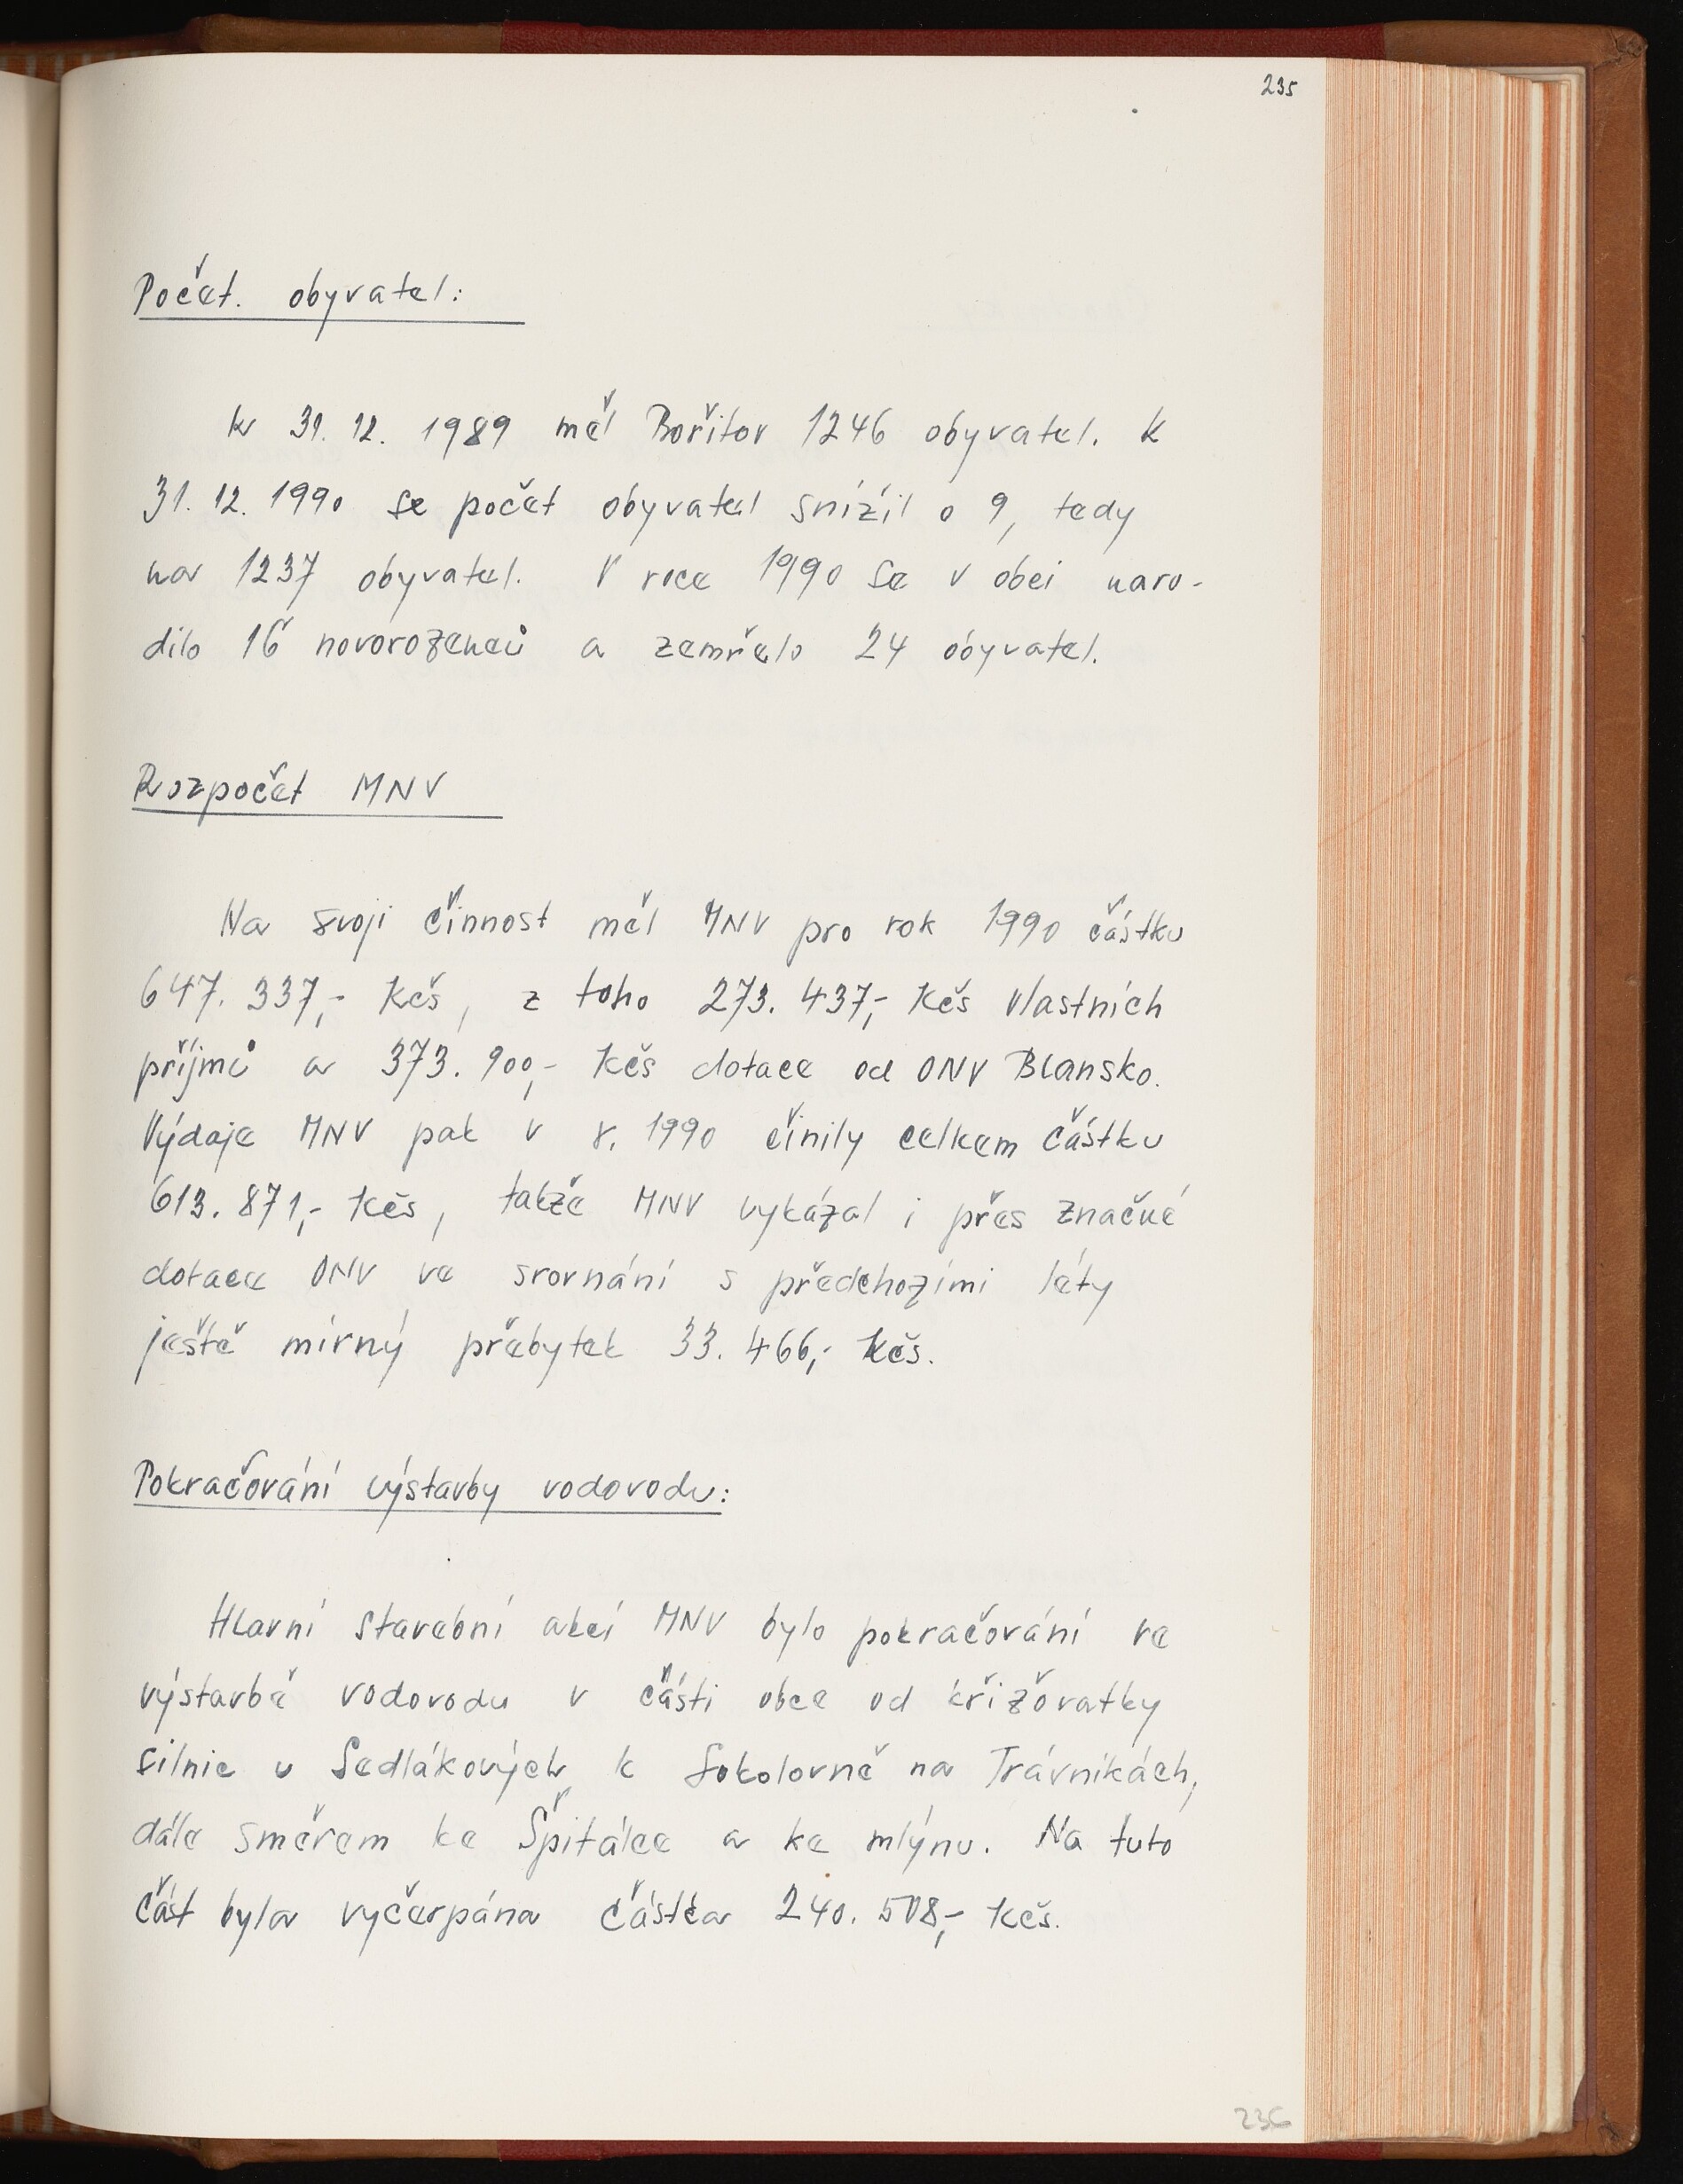 235
Počet obyvatel:
K 31. 12. 1989 měl Bořitov 1246 obyvatel. K
31. 12. 1990 se počet obyvatel snížil o 9, tedy
na 1237 obyvatel. V roce 1990 se v obci naro-
dilo 16 novorozenců a zemřelo 24 obyvatel.
Rozpočet MNV
Na svoji činnost měl MNV pro rok 1990 částku
647. 337,- Kčs, z toho 273. 437,- Kčs vlastních
příjmů a 373. 900,- Kčs dotace od ONV Blansko.
Výdaje MNV pak v r. 1990 činily celkem částku
613. 871,- Kčs, takže MNV vykázal i přes značné
dotace ONV ve srovnání s předchozími léty
ještě mírný přebytek 33. 466,- Kčs.
Pokračování výstavby vodovodu:
Hlavní stavební akcí MNV bylo pokračování ve
výstavbě vodovodu v části obce od křižovatky
silnic u Sedlákových k Sokolovně na Trávníkách,
dále směrem ke Špitálce a ke mlýnu. Na tuto
část byla vyčerpána částka 240. 508,- Kčs.
236